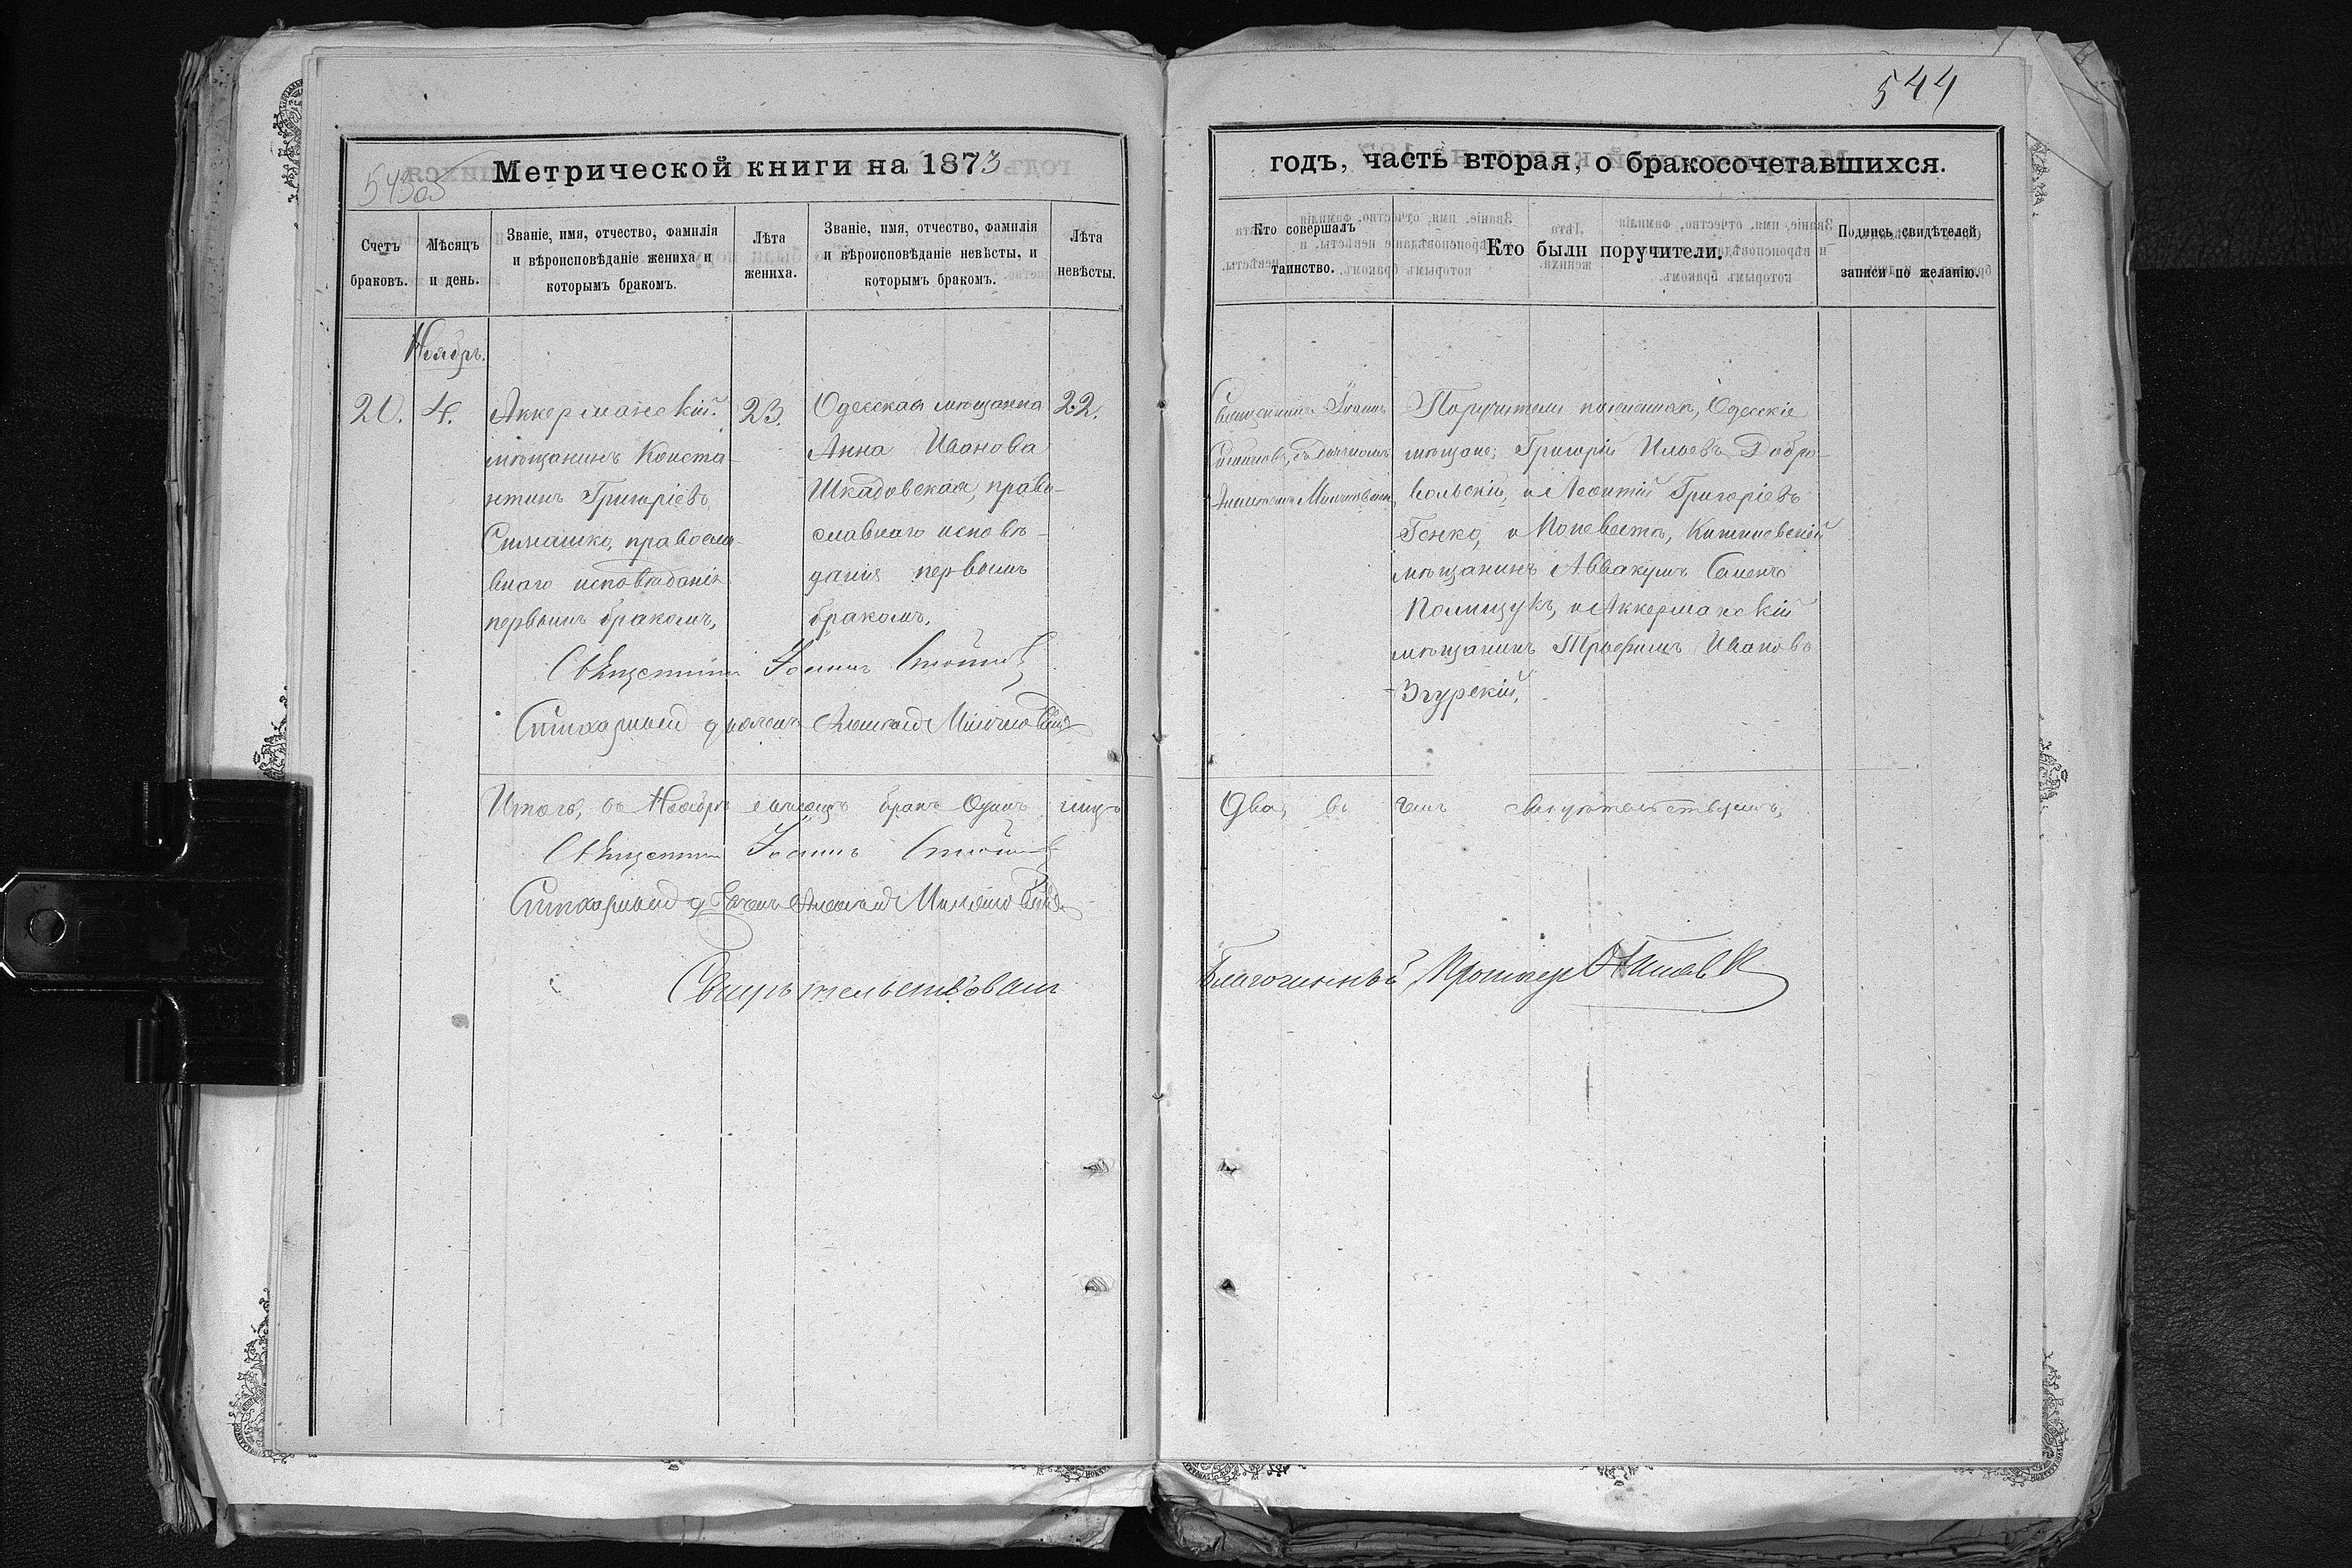 544
543об
Метрической книги на 1873
годъ, часть вторая, о бракосочетавшихся.
Счетъ браковъ.
Мѣсяцъ и день.
Званіе, имя, отчество, фамилія
и вѣроисповѣданіе жениха и
которымъ бракомъ.
Лѣта жениха.
Званіе, имя, отчество, фамилія
и вѣроисповѣданіе невѣсты, и
которымъ бракомъ.
Лѣта невѣсты.
Кто совершалъ
таинство.
Кто были поручители.
Подпись свидѣтелей
записи по желанію.
Ноябрь.
20.
4.
Аккерманскій
мѣщанинъ Конста-
нтинъ Григоріевъ
православ-
наго исповѣданія
первымъ бракомъ,
23.
Одесская мѣщанка
Анна Иванова
Шкадовская, право-
славнаго исповѣ-
данія первымъ
бракомъ.
22.
Священникъ Іоаннъ
Поручители по женихѣ, Одесскіе
мѣщане: Григорій Ильевъ Добро-
вольскій, и Леонтій Григоріевъ
Генко, и По невѣстѣ, Кишиневскій
мѣщанинъ Аввакумъ
Полищукъ, и Аккерманскій
мѣщанинъ Трофимъ Ивановъ
Згурскій,
Священникъ Іоаннъ
Стихарный дьячекъ
Итого, въ Ноябрѣ мѣсяцѣ бракъ Одинъ, лицъ
Два, въ чемъ свидѣтельствуемъ,
Священникъ Іоаннъ
Стихарный дьячекъ
Свидѣтельствовалъ
Благочинный